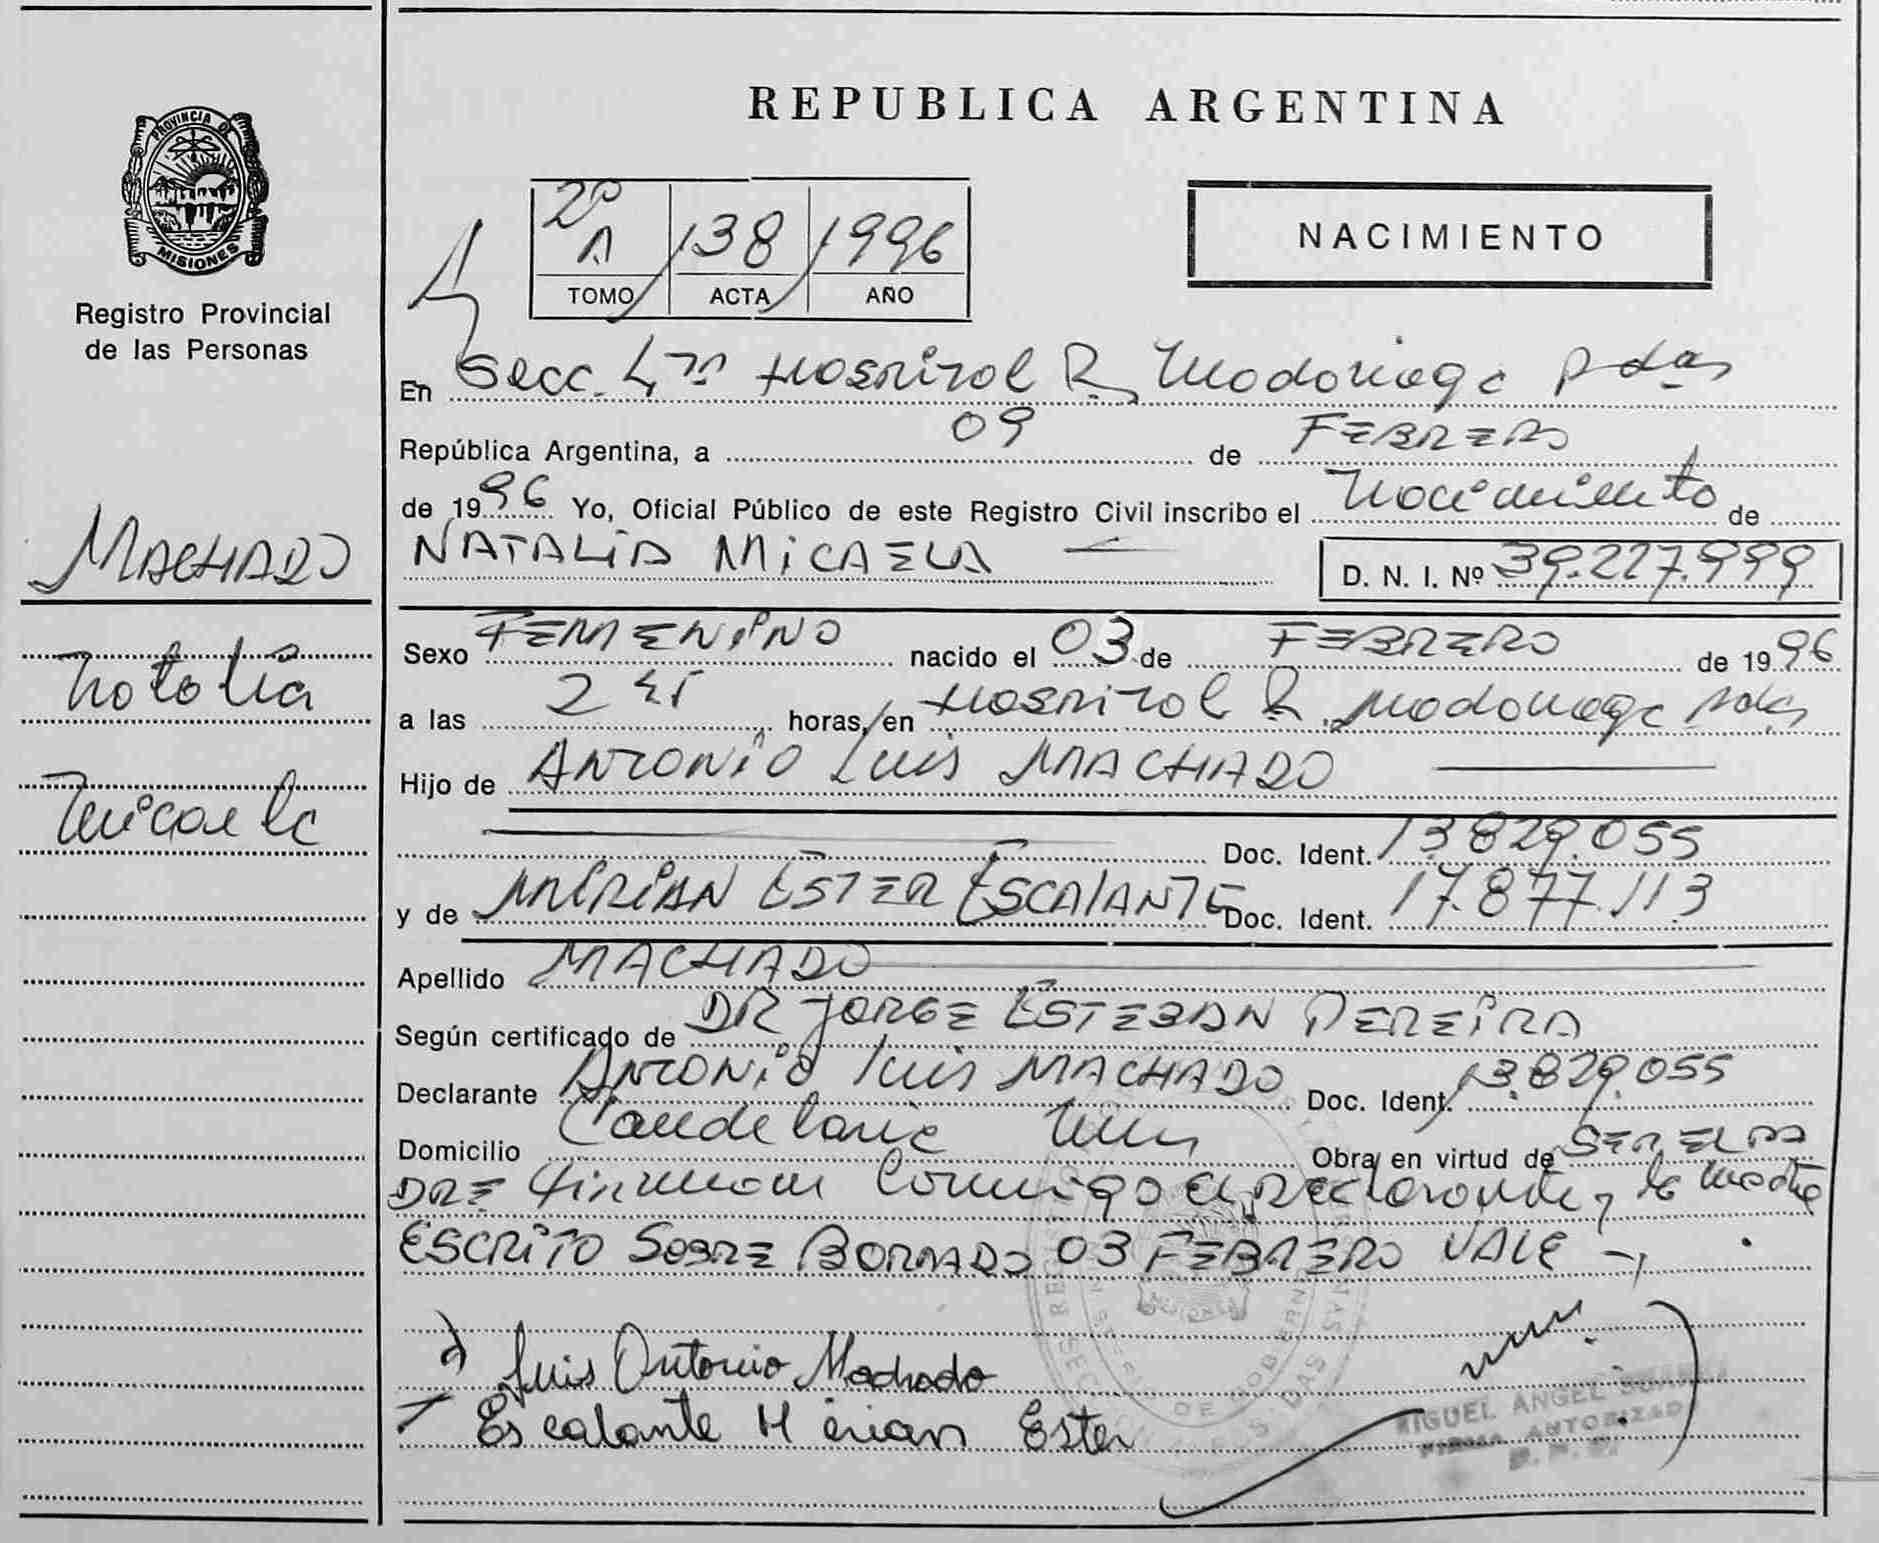 REPUBLICA ARGENTINA
PROVINCIA DE MISIONES
Registro Provincial
de las Personas
2º A 138 1996
TOMO ACTA AÑO
NACIMIENTO
En Secc. 4ta Hospital R. Madariaga Pdas
República Argentina, a 09 de FEBRERO
de 1996 Yo, Oficial Público de este Registro Civil inscribo el Nacimiento de
NATALIA MICAELA D. N. I. Nº 39.227.999
MACHADO
Natalia
Micaela
Sexo FEMENINO nacido el 03 de FEBRERO de 1996
a las 2 horas, en Hospital R. Madariaga Pdas
Hijo de ANTONIO LUIS MACHADO
Doc. Ident. 13.829.055
y de MIRIAN ESTER ESCALANTE Doc. Ident. 17.877.113
Apellido MACHADO
Según certificado de DR JORGE ESTEBAN PEREIRA
Declarante ANTONIO LUIS MACHADO Doc. Ident. 13.829.055
Domicilio Candelaria Mnes Obra en virtud de SER EL PA
DRE Firman Conmigo el Declarante y la Madre
ESCRITO SOBRE BORRADO 03 FEBRERO VALE
Luis Antonio Machado
Escalante Mirian Ester
MIGUEL ANGEL SUAREZ
FIRMA AUTORIZADA